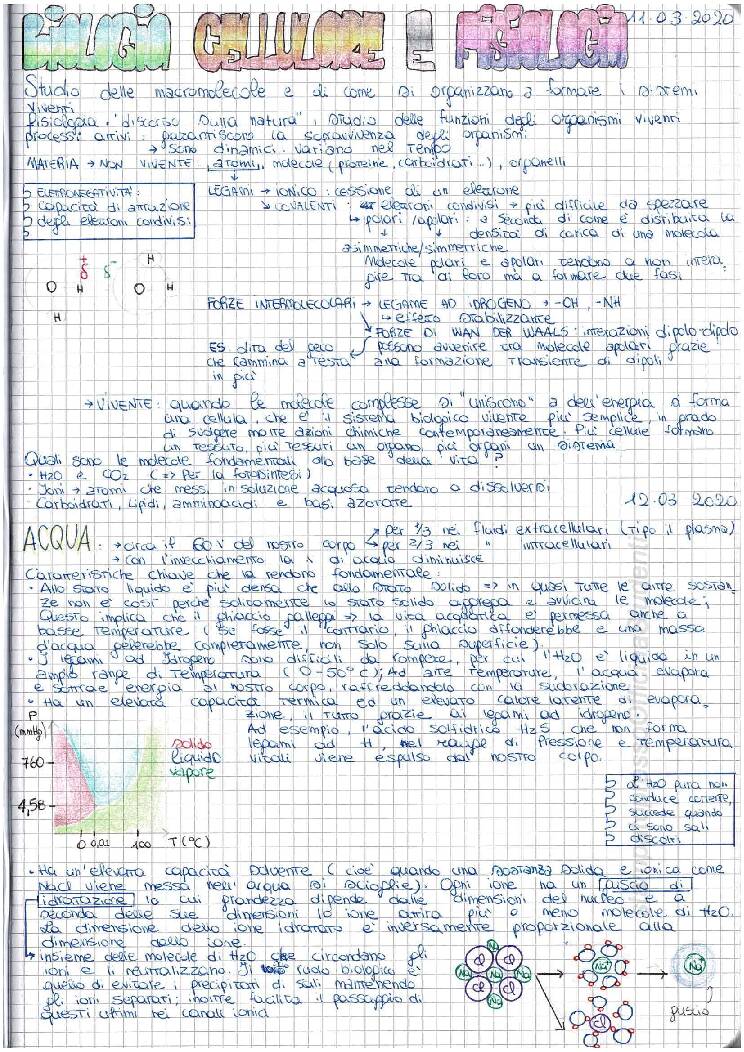 BIOLOGIA CELLULARE E FISIOLOGIA
11·03·2020
Studio delle macromolecole e di come si organizzano a formare i sistemi
viventi
fisiologia: "discorso sulla natura", studio delle funzioni degli organismi viventi
processi attivi: garantiscono la sopravvivenza degli organismi
→ sono dinamici: variano nel tempo
MATERIA → NON VIVENTE: atomi, molecole (proteine, carboidrati...), organelli
ELETRONEGATIVITA':
capacità di attrazione
degli elettroni condivisi
LEGAMI → IONICO: cessione di un elettrone
COVALENTI: elettroni condivisi → più difficile da spezzare
polari/apolari: a seconda di come è distribuita la
densità di carica di una molecola
asimmetriche/simmetriche
Molecole polari e apolari tendono a non intera-
gire tra di loro ma a formare due fasi
+
δ δ⁻
H
O H O H
H
FORZE INTERMOLECOLARI → LEGAME AD IDROGENO → -CH, -NH
↳ effetto stabilizzante
FORZE DI WAN DER WAALS: interazioni dipolo-dipolo
possono avvenire tra molecole apolari grazie
alla formazione transiente di dipoli
ES dita del geco
che cammina a testa
in giù
→ VIVENTE: quando le molecole complesse si "uniscono" a dell'energia si forma
una cellula, che è il sistema biologico vivente più semplice, in grado
di svolgere molte azioni chimiche contemporaneamente. Più cellule formano
un tessuto, più tessuti un organo, più organi un sistema
Quali sono le molecole fondamentali alla base della vita?
· H2O e CO2 (=> per la fotosintesi)
· Ioni → atomi che messi in soluzione acquosa tendono a dissolversi
Carboidrati, lipidi, amminoacidi e basi azotate
12·03 2020
ACQUA: → circa il 60% del nostro corpo
per 1/3 nei fluidi extracellulari (tipo il plasma)
per 2/3 nei " intracellulari
→ con l'invecchiamento la % di acqua diminuisce
Caratteristiche chiave che la rendono fondamentale:
· Allo stato liquido è più densa che allo stato solido => in quasi tutte le altre sostan-
ze non è così perché solitamente lo stato solido aggrega e avvicina le molecole;
Questo implica che il ghiaccio galleggi => la vita acquatica è permessa anche a
basse temperature (se fosse il contrario, il ghiaccio affonderebbe e una massa
d'acqua gelerebbe completamente, non solo sulla superficie).
· I legami ad idrogeno sono difficili da rompere, per cui l'H2O è liquida in un
ampio range di temperatura (0-50°C); Ad alte temperature, l'acqua evapora
e sottrae energia al nostro corpo, raffreddandolo con la sudorazione
· Ha un elevata capacità termica ed un elevato calore latente di evapora-
zione, il tutto grazie ai legami ad idrogeno.
Ad esempio, l'acido solfidrico H2S che non forma
legami ad H, nel range di pressione e temperatura
vitali viene espulso dal nostro corpo.
P
(mmHg)
760
4,58
0 0,01 100 T(°C)
solido
liquido
vapore
L'H2O pura non
conduce corrente,
succede quando
ci sono sali
disciolti
· Ha un'elevata capacità solvente (cioè quando una sostanza solida e ionica come
NaCl viene messa nell'acqua si scioglie). Ogni ione ha un guscio di
idratazione la cui grandezza dipende dalle dimensioni del nucleo e a
seconda delle sue dimensioni lo ione attira più o meno molecole di H2O.
La dimensione dello ione idratato è inversamente proporzionale alla
dimensione dello ione.
insieme delle molecole di H2O che circondano gli
ioni e li neutralizzano. Il ruolo biologico è
quello di evitare i precipitati di sali mantenendo
gli ioni separati; inoltre facilita il passaggio di
questi ultimi nei canali ionici
Na Cl Cl Na Na Na Cl Cl Na
Na⁺
Na⁺
Cl
guscio